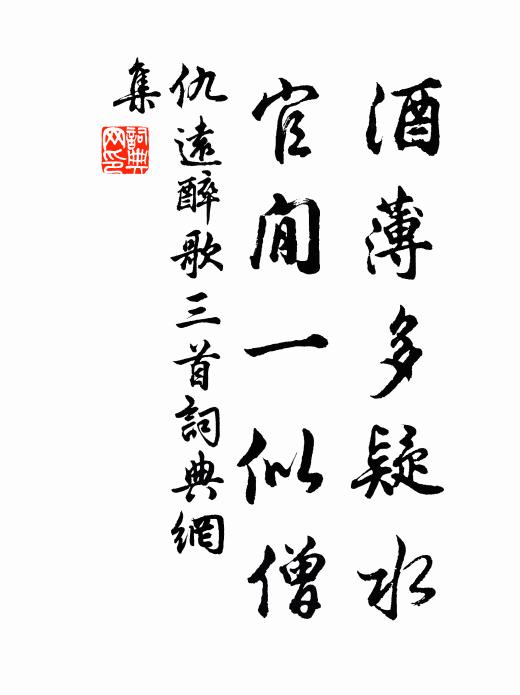 酒薄多疑水
官閒一似僧
仇遠醉歌三首詞典網
集
詞典
网印